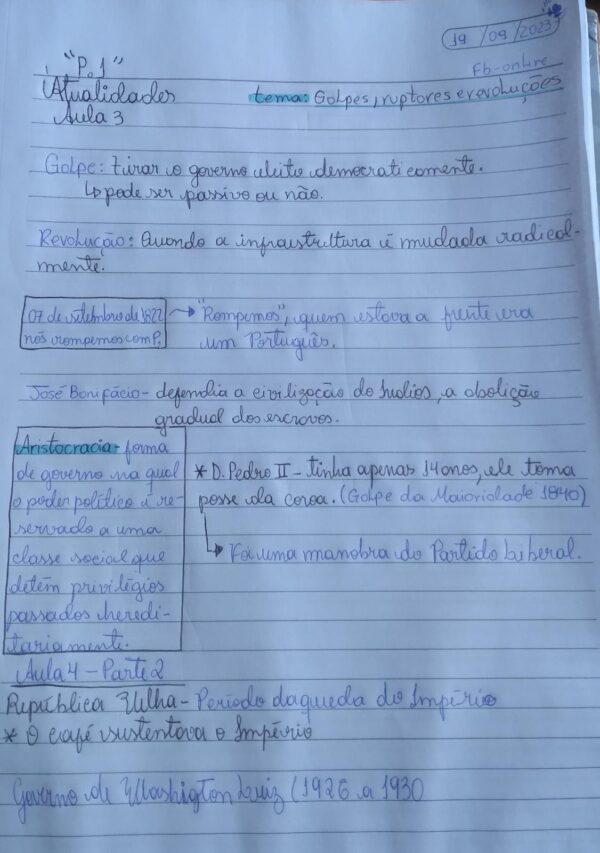 19/09/2023
"P.1"
Fb-online
Atualidades
tema: Golpes, ruptores e revoluções
Aula 3
Golpe: tirar o governo eleito democraticomente.
↳ pode ser passivo ou não.
Revolução: Quando a infraestrutura é mudada radical-
mente.
07 de setembro de 1822
nós rompemos com P.
→ "Rompemos", quem estava a frente era
um Português.
José Bonifácio - defendia a civilização do Índios, a abolição
gradual dos escravos.
Aristocracia - forma
de governo na qual
o poder político é re-
servado a uma
classe social que
detêm privilégios
passados heredi-
tariamente.
* D. Pedro II - tinha apenas 14 anos, ele toma
posse da coroa. (Golpe da Maioridade 1840)
↳ Foi uma manobra do Partido Liberal.
Aula 4 - Parte 2
República Velha - Período da queda do Império
* O café sustentava o Império
Governo de Washigton Luiz (1926 a 1930